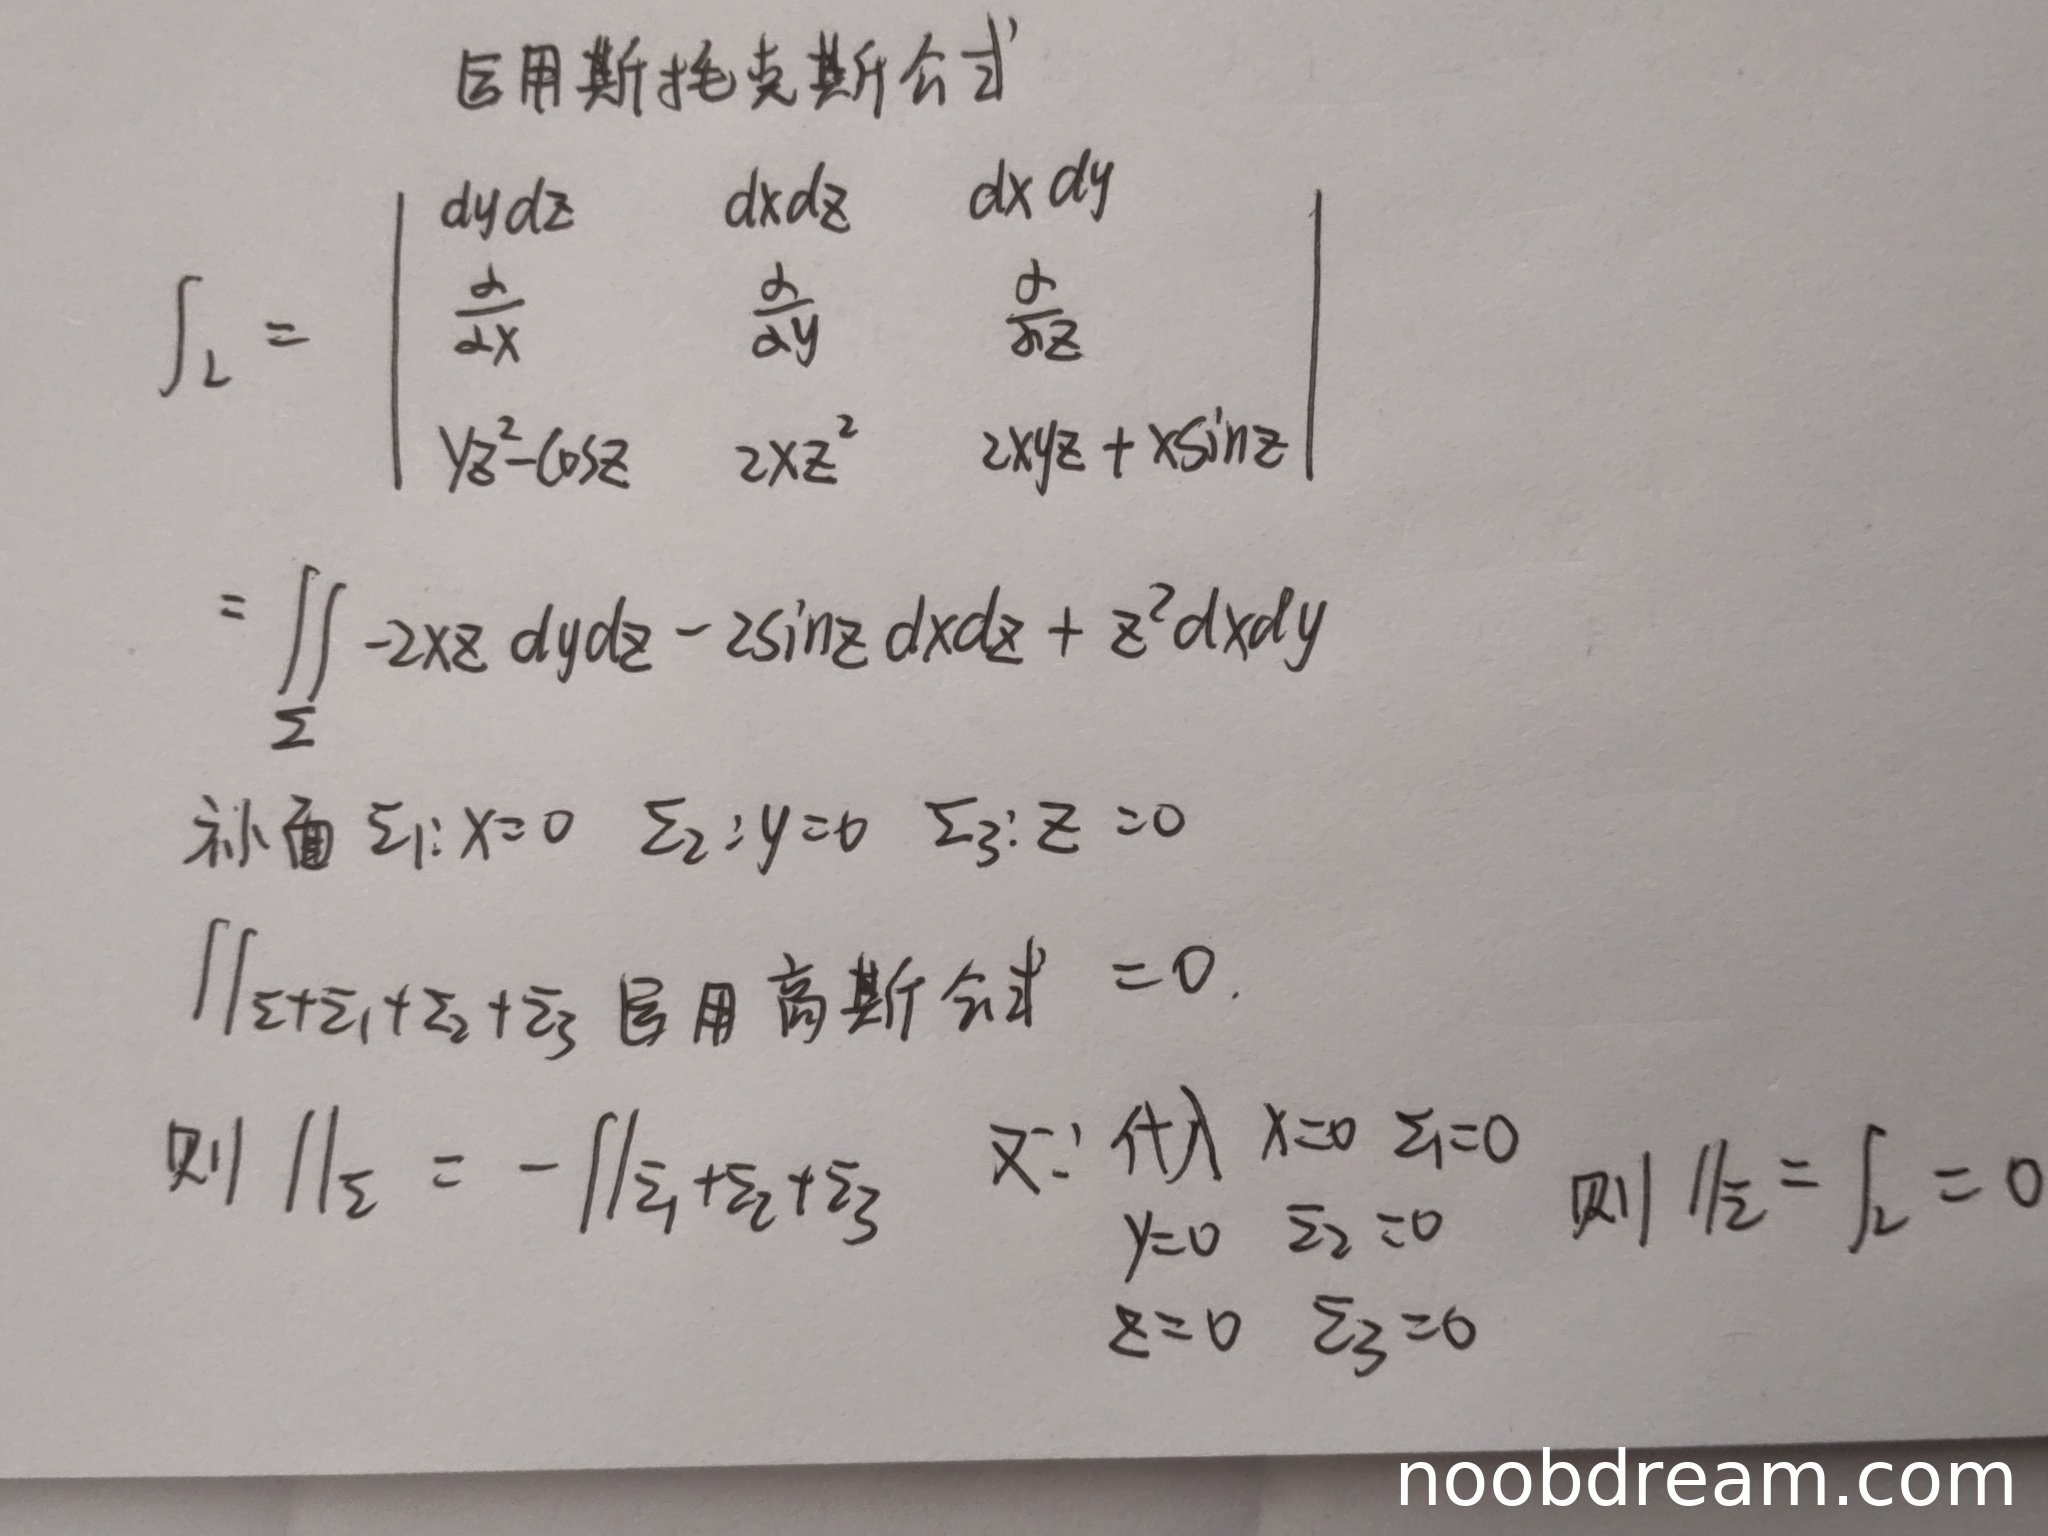 应用斯托克斯公式
∫_L = | dydz dxdz dxdy |
| ∂/∂x ∂/∂y ∂/∂z |
| yz²-cosz 2xz² 2xyz + xsinz |
= ∬_Σ -2xz dydz - 2sinz dxdz + z²dxdy
补面 Σ1: x=0 Σ2: y=0 Σ3: z=0
∬_Σ+Σ1+Σ2+Σ3 应用高斯公式 =0.
则 ∬_Σ = -∬_Σ1+Σ2+Σ3 又∵ 代入 x=0 Σ1=0 则 ∬_Σ = ∫_L = 0
y=0 Σ2=0
z=0 Σ3=0
noobdream.com